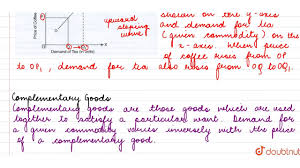 Price of Coffee
Demand of Tea (in Units)
upward
sloping
curve
shown on the y-axis
and demand for tea
(given commodity) on the
x-axis. When price
of coffee rises from OP
to OP₁, demand for tea also rises from OQ to OQ₁.
Complementary Goods
Complementary goods are those goods which are used
together to satisfy a particular want. Demand for
a given commodity varies inversely with the price
of a complementary good.
doubtnut